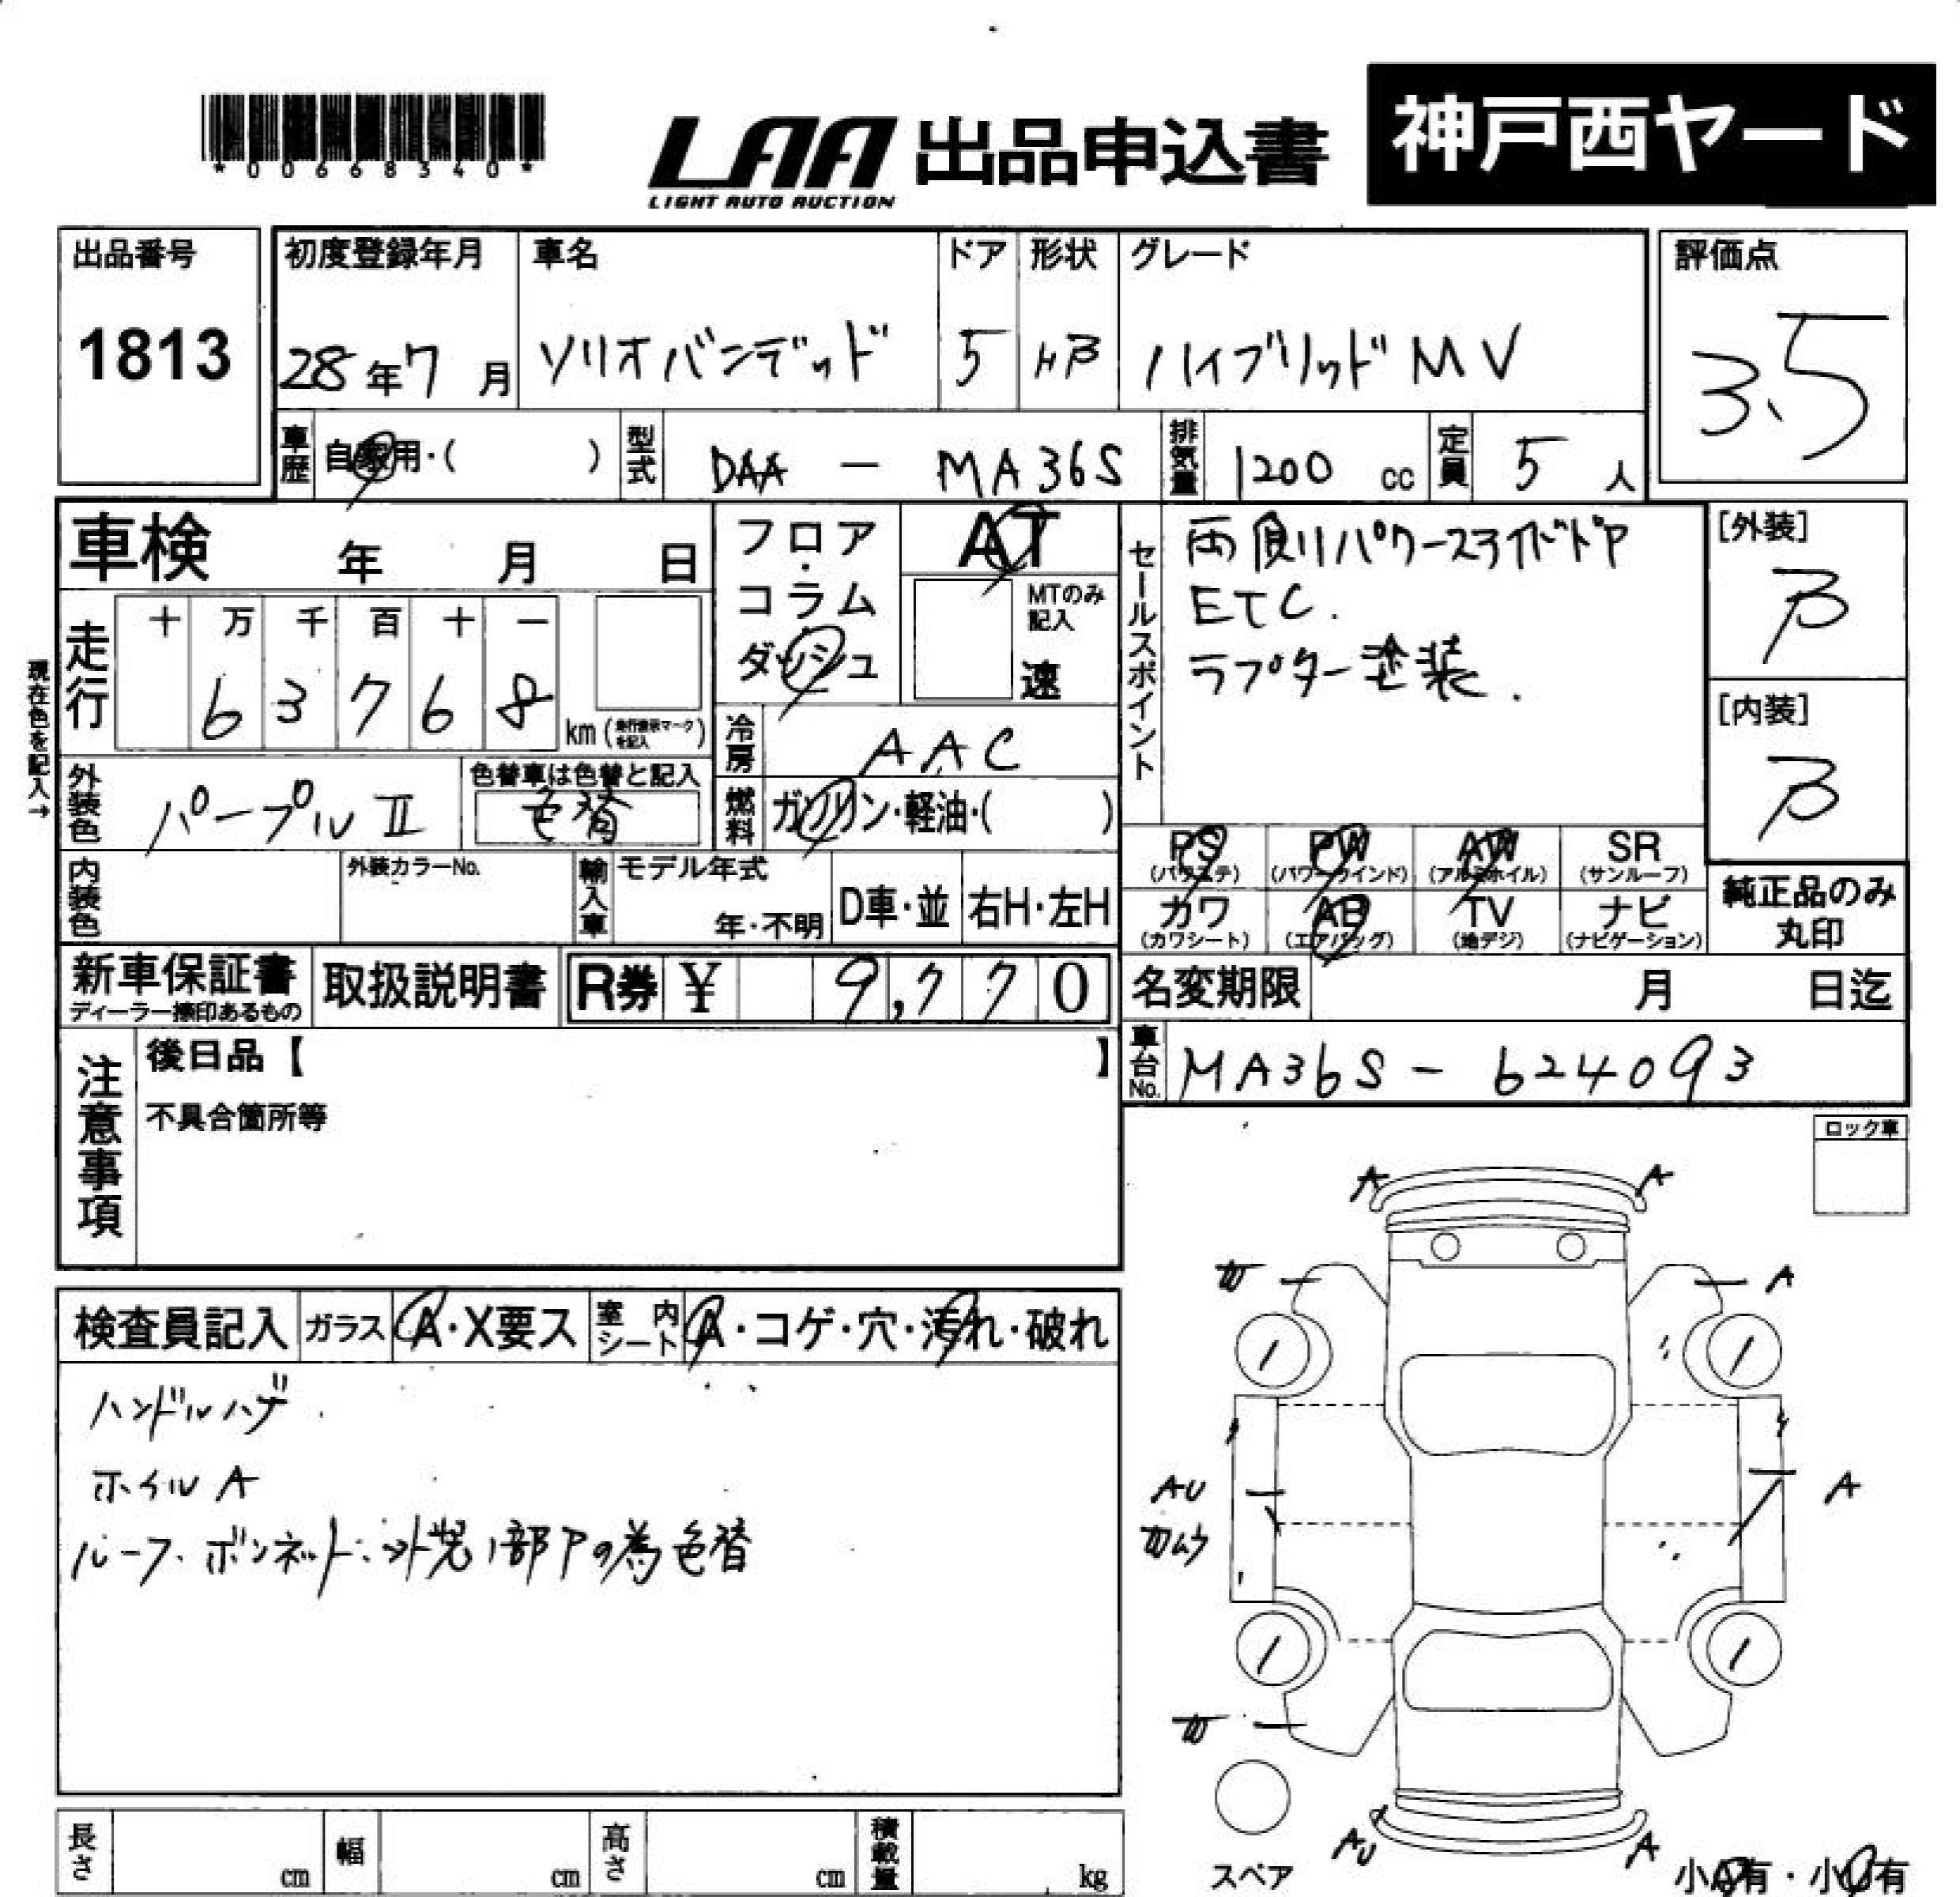 *00668340*
LAA 出品申込書
LIGHT AUTO AUCTION
神戸西ヤード
出品番号
1813
初度登録年月
28年7月
車名
ソリオバンデッド
ドア
5
形状
HB
グレード
ハイブリッドMV
評価点
3.5
車歴
自家用・( )
型式
DAA - MA36S
排気量
1200 cc
定員
5人
車検 年 月 日
フロア・コラム・ダッシュ
AT
MTのみ記入
速
セールスポイント
両側パワースライドドア
ETC.
ラプター塗装.
[外装]
B
[内装]
B
現在色を記入→
走行
十 万 千 百 十 一
6 3 7 6 8
km(走行表示マークを記入)
冷房
AAC
外装色
パープルII
色替車は色替と記入
色替
燃料
ガソリン・軽油・( )
PS (パワステ)
PW (パワーウインド)
AW (アルミホイル)
SR (サンルーフ)
カワ (カワシート)
AB (エアバッグ)
TV (地デジ)
ナビ (ナビゲーション)
純正品のみ丸印
内装色
外装カラーNo.
輸入車
モデル年式
年・不明
D車・並
右H・左H
新車保証書
ディーラー捺印あるもの
取扱説明書
R券 ¥ 9,770
名変期限 月 日迄
車台No.
MA36S - 624093
注意事項
後日品【 】
不具合箇所等
ロック車
検査員記入
ガラス
A・X要ス
室内シート
A・コゲ・穴・汚れ・破れ
ハンドルハゲ
ホイルA
ルーフ.ボンネット.
1部Pの為色替
A
A
W
A
AU
A
W
AU
A
スペア
小A有・小U有
長さ cm
幅 cm
高さ cm
積載量 kg